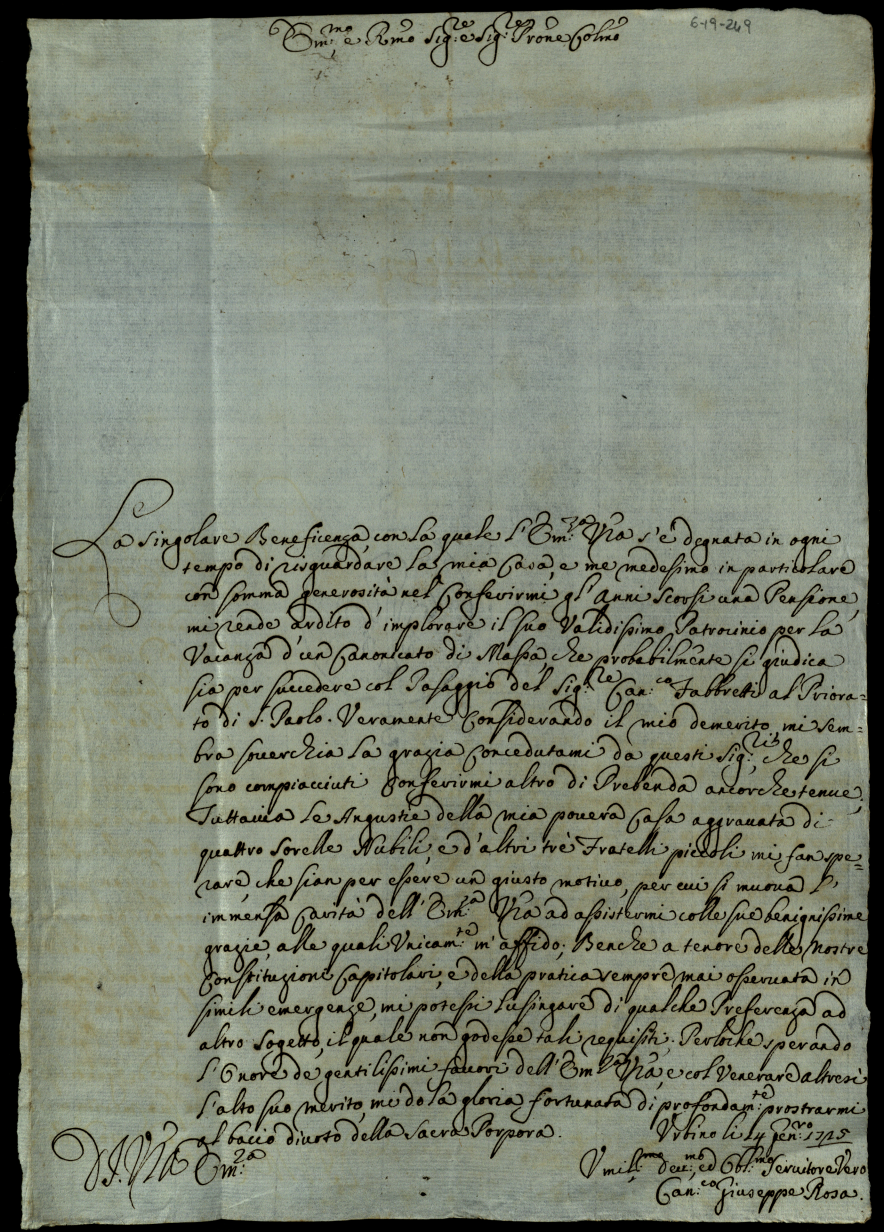 6-19-249
Em:mo e Rmo Sig:re e Sig:re Prone Colmo
La singolare Beneficenza, con la quale l'Em:za Vra s'è degnata in ogni
tempo di risguardare la mia Casa, e me medesimo in particolare
con somma generosità nel Conferirmi gl'Anni scorsi una Pensione,
mi rende ardito d'implorare il suo Validissimo Patrocinio per la
Vacanza d'un Canonicato di Massa che probabilmente si giudica
sia per succedere col Pasaggio del Sig:re Can:co Fabbretti al Priora=
to di S. Paolo. Veramente Considerando il mio demerito, mi sem=
bra soverchia la grazia Concedutami da questi Sig:ri, che si
sono compiacciuti Conferirmi altro di Prebenda ancorche tenue;
Tuttavia le Angustie della mia povera Casa aggravata di
quattro Sorelle Nubili, e d'altri trè Fratelli piccoli mi fan spe=
rare, che sian per essere un giusto motivo, per cui si muova l'
immensa Carità dell'Em:za Vra ad assistermi colle sue benignissime
grazie, alle quali Unicam:te m'affido; Benche a tenore delle Nostre
Constituzioni Capitolari, e della pratica sempre mai osservata in
simili emergenze, mi potessi lusingare di qualche Preferenza ad
altro Sogetto, il quale non godesse tali requisiti. Perloche sperando
l'Onore de gentilissimi favori dell'Em:za Vra, e col Venerare altresì
l'alto suo merito, mi do la gloria fortunata di profondam:te prostrarmi
al baccio divoto della Sacra Porpora. Urbino li 14 Gen:ro 1715
D. V. Em:za
Umil:mo dev:mo ed Obl:mo Servitore Vero
Can:co Giuseppe Rosa.